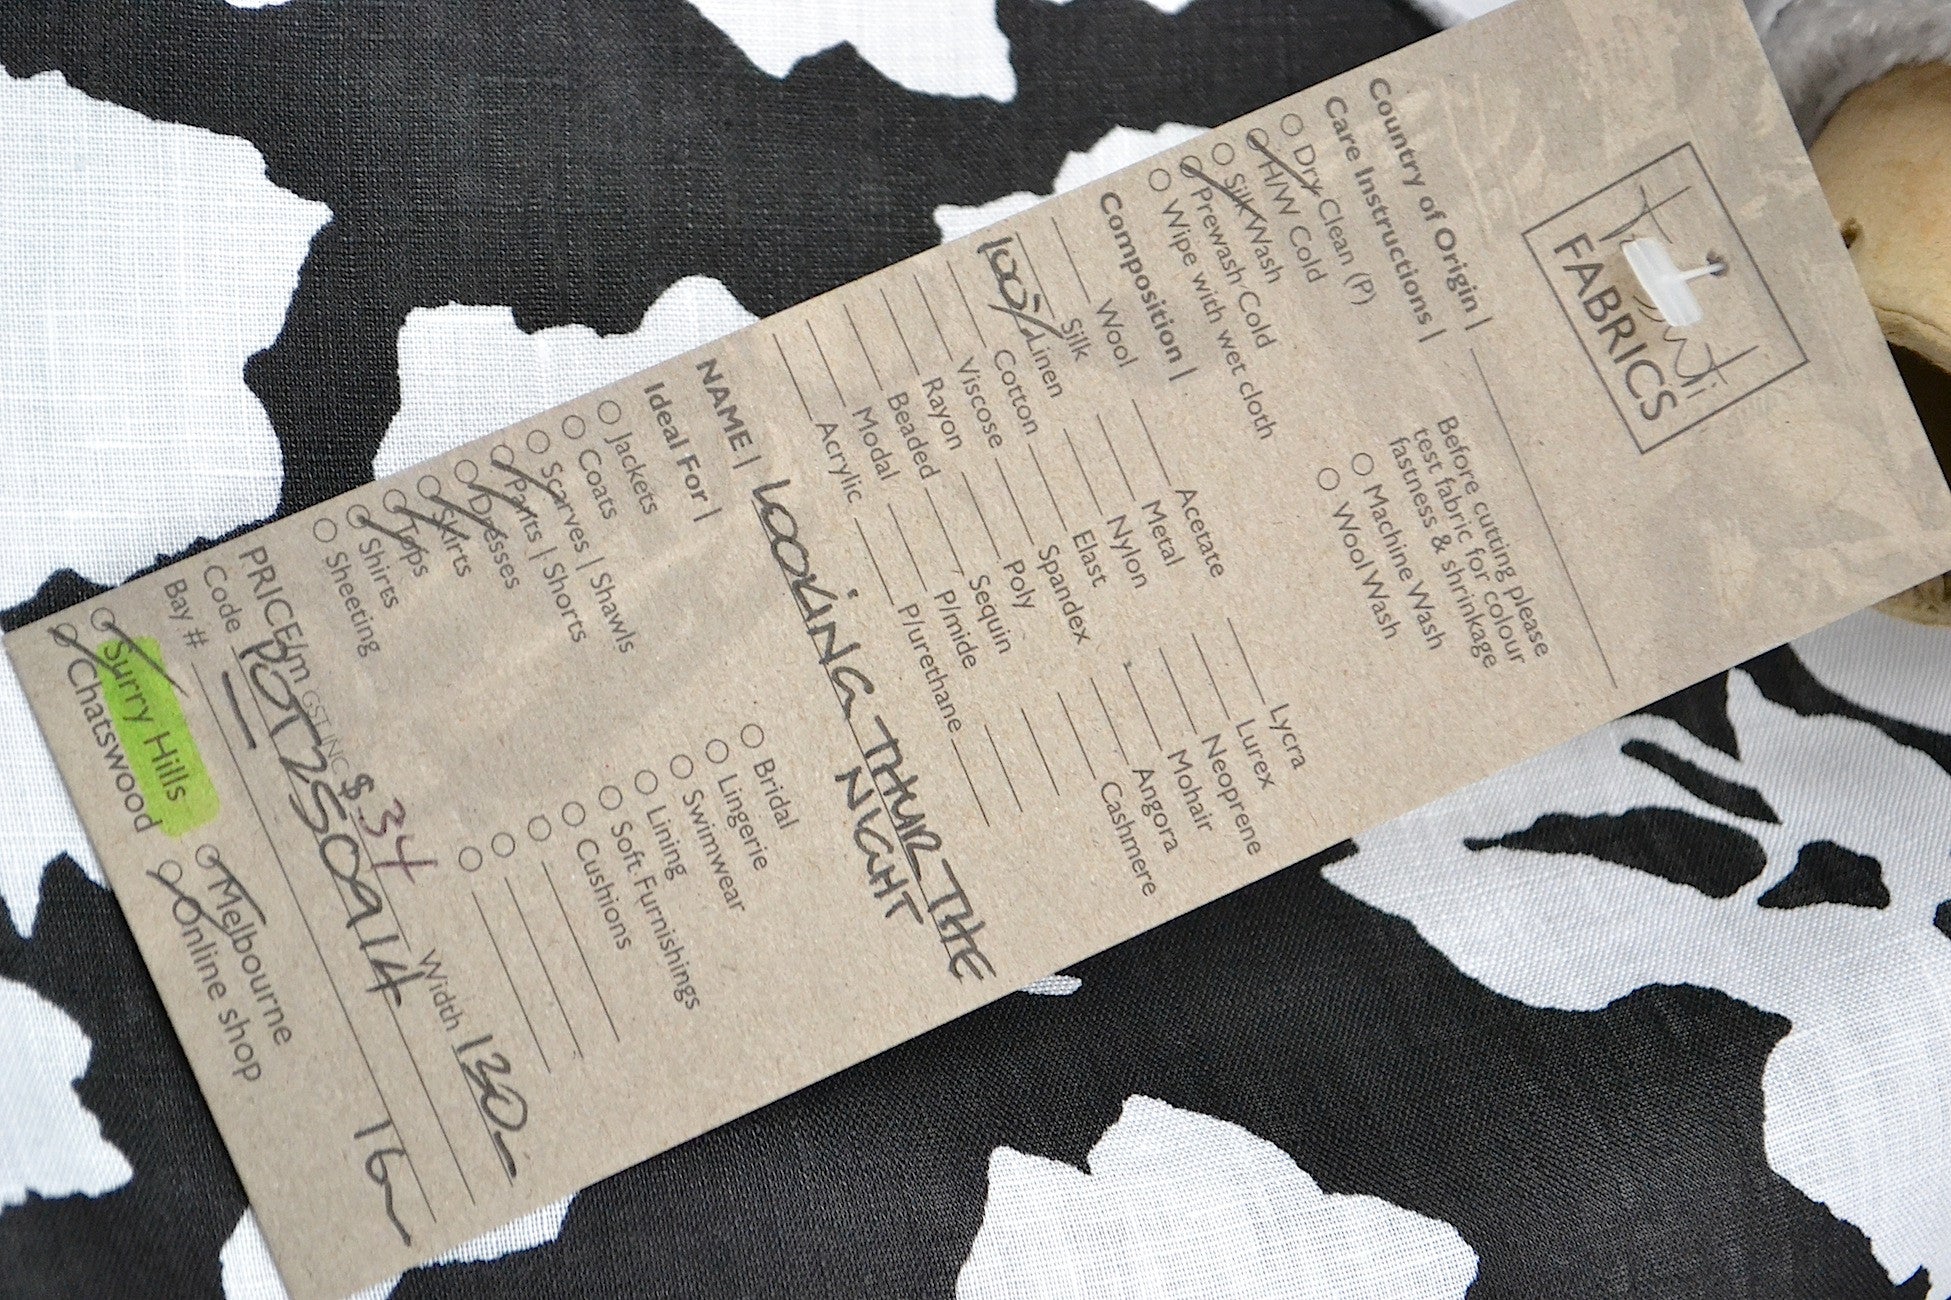 Tessuti
FABRICS
Country of Origin |
Care Instructions |
Before cutting please
test fabric for colour
fastness & shrinkage
Dry Clean (P)
H/W Cold
Silk Wash
Prewash Cold
Wipe with wet cloth
Machine Wash
Wool Wash
Composition |
Wool Acetate Lycra
Silk Metal Lurex
100% Linen Nylon Neoprene
Cotton Elast Mohair
Viscose Spandex Angora
Rayon Poly Cashmere
Beaded Sequin
Modal P/mide
Acrylic P/urethane
NAME | LOOKING THUR THE
NIGHT
Ideal For |
Jackets Bridal
Coats Lingerie
Scarves | Shawls Swimwear
Pants | Shorts Lining
Dresses Soft Furnishings
Skirts Cushions
Tops
Shirts
Sheeting
PRICE/m GST INC $.34 Width 130-
Code POT250914
Bay # — TG
Surry Hills Melbourne
Chatswood Online shop